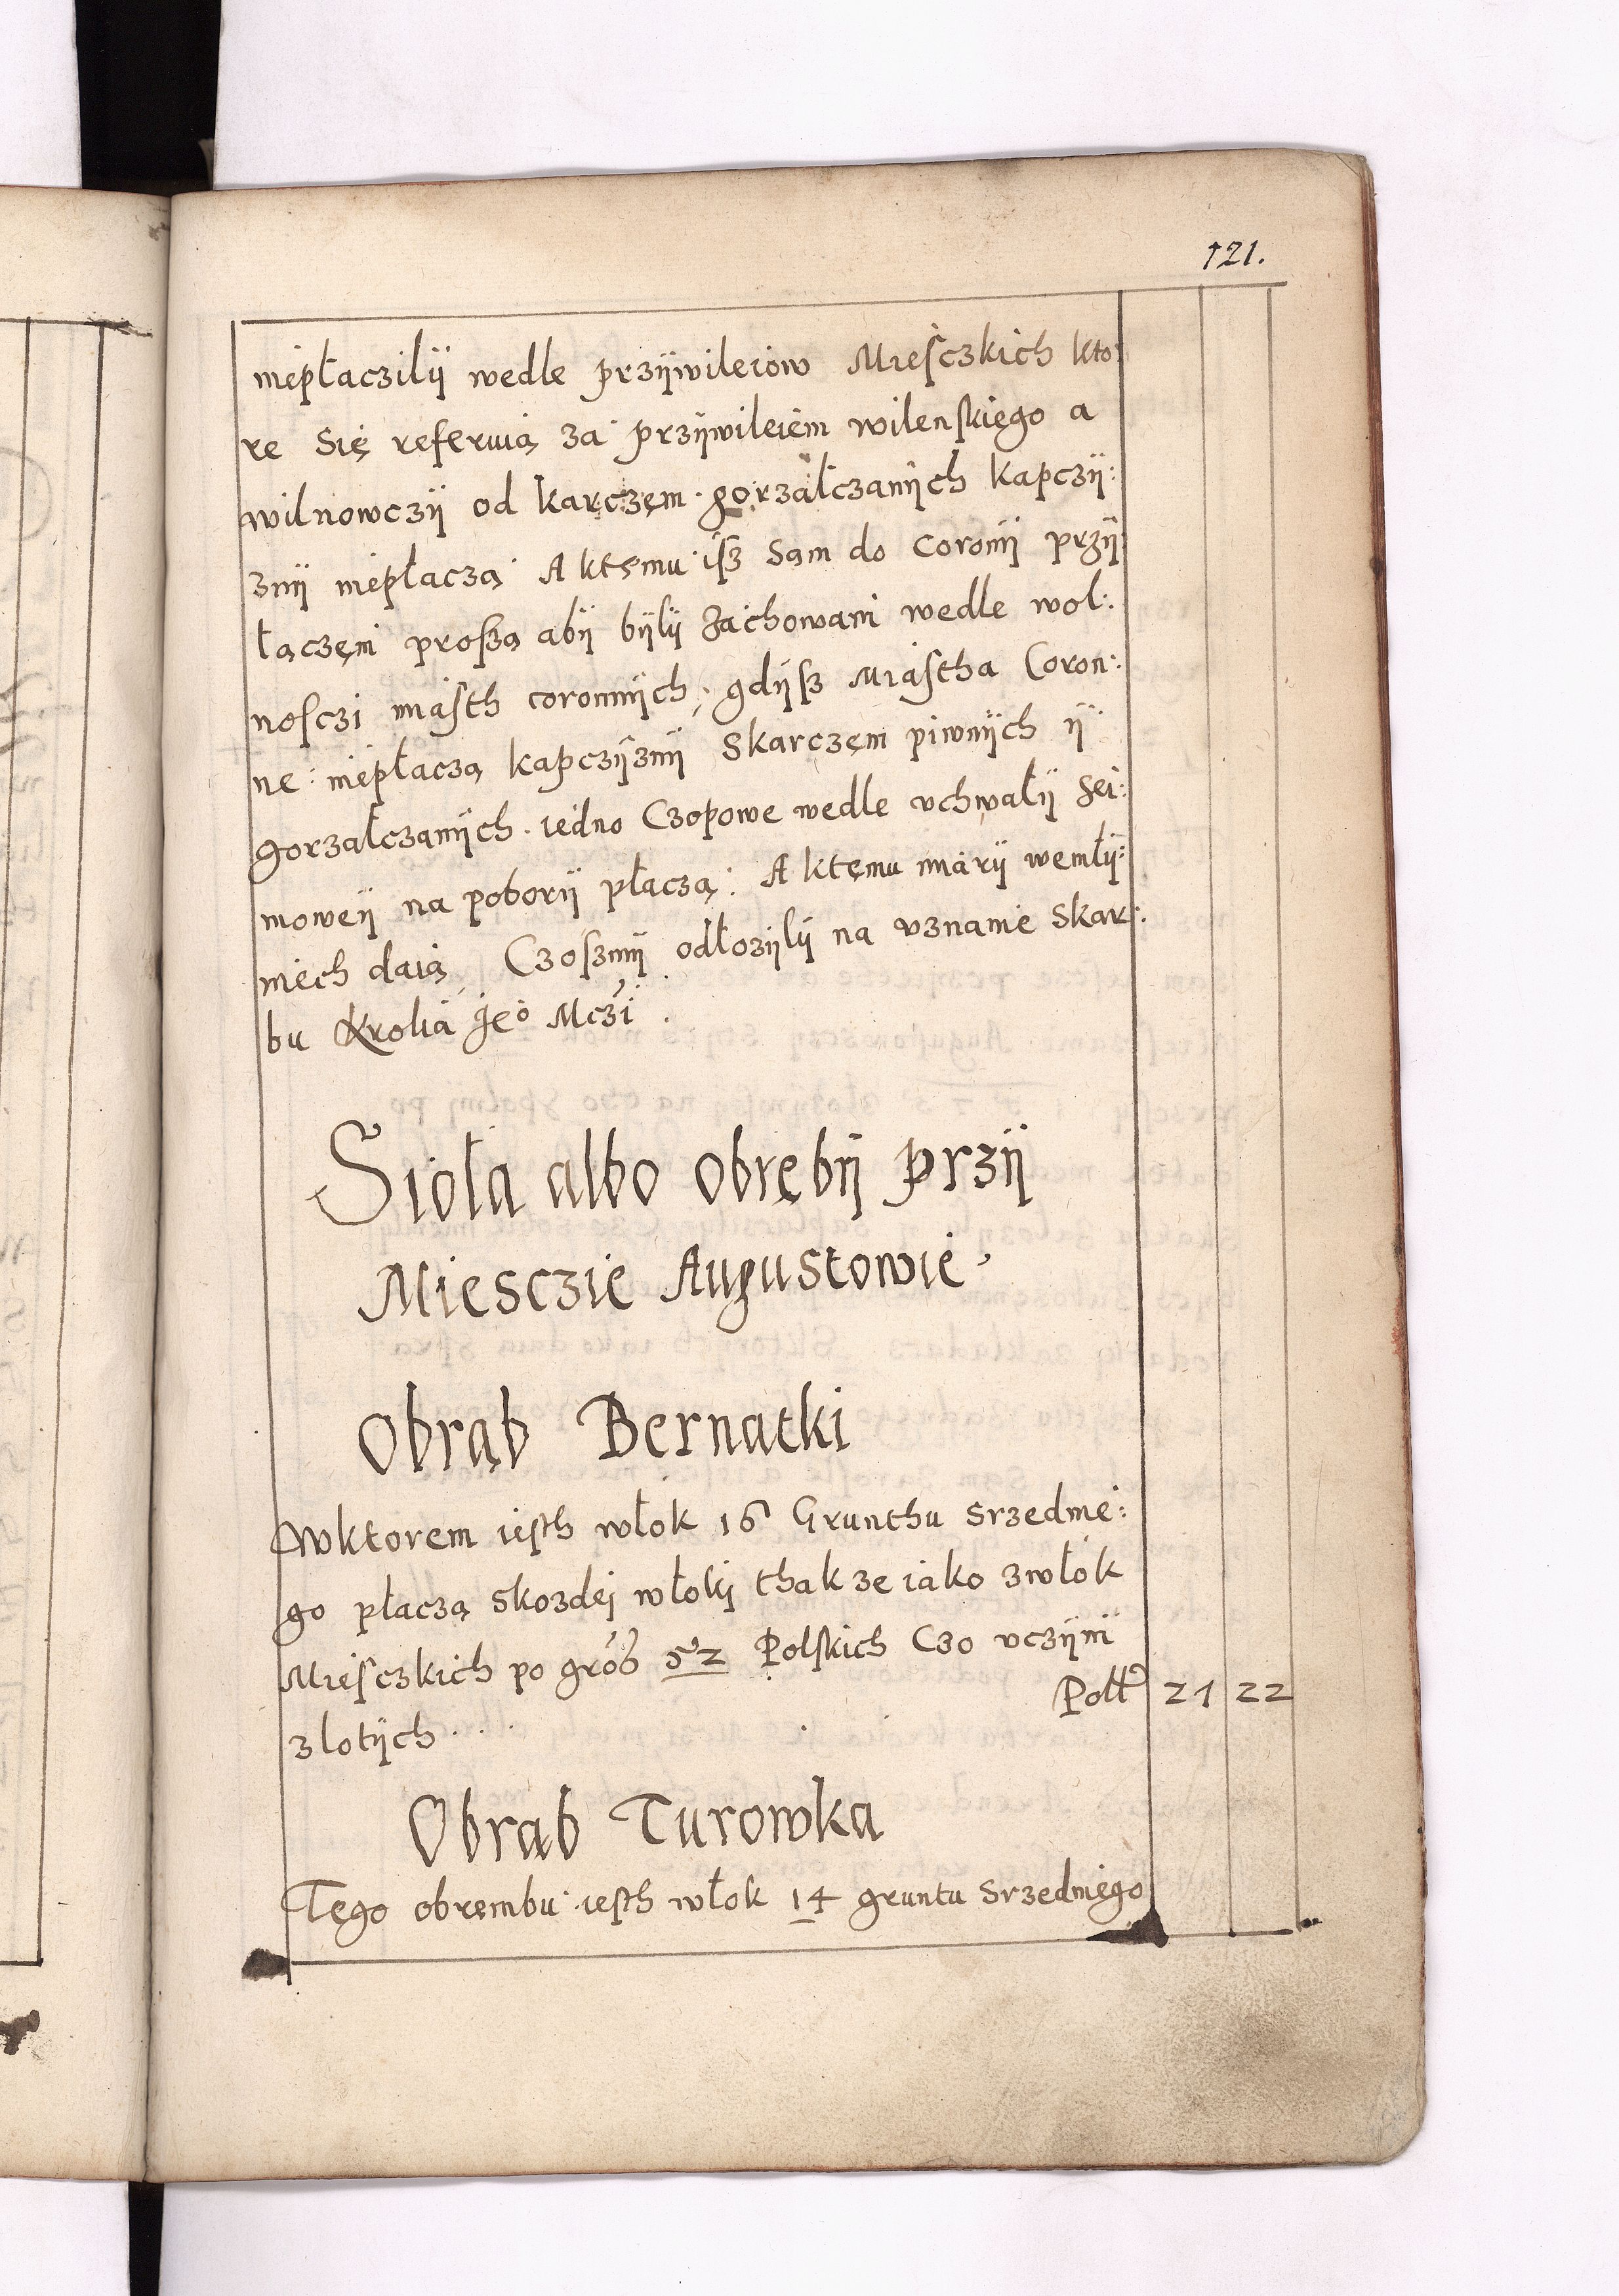 121.
niepłaczilÿ wedle przÿwileiow Mieſczkich kto:
re Się referuią za przÿwileiem wilenſkięgo a
wilnowczÿ od karczęm gorzałczanÿch kapczÿ:
znÿ niepłaczą A ktęmu iſz Sąm do Coronÿ przÿ:
łączęni proſzą abÿ bÿlÿ zachowani wedle wol:
noſczi miaſth coronnÿch, gdÿſz Miaſtha Coron:
ne niepłaczą kapczÿznÿ Skarczęm piwnÿch ÿ
gorzałczanÿch iedno Czopowe wedle vchwałÿ Sei:
moweÿ na poborÿ płaczą: A ktęmu miarÿ wemłÿ:
niech daią Czoſzmÿ odłozÿlÿ na vznanie Skar:
bu Krolia Jeº Mczi
Sioła albo obrębÿ przÿ
Miesczie Augustowie
Obrąb Bernatki
Wktorem ieſth włok 16 Grunthu Srzednie:
go płaczą Skozdej włokj thak ze iako zwłok
Mieſczkich po gróß 52 Polſkich Czo vczÿni
złotÿch . . . . Poll 21 22
Obrąb Turowka
Tęgo obrembu ieſth włok 14 gruntu Srzednięgo